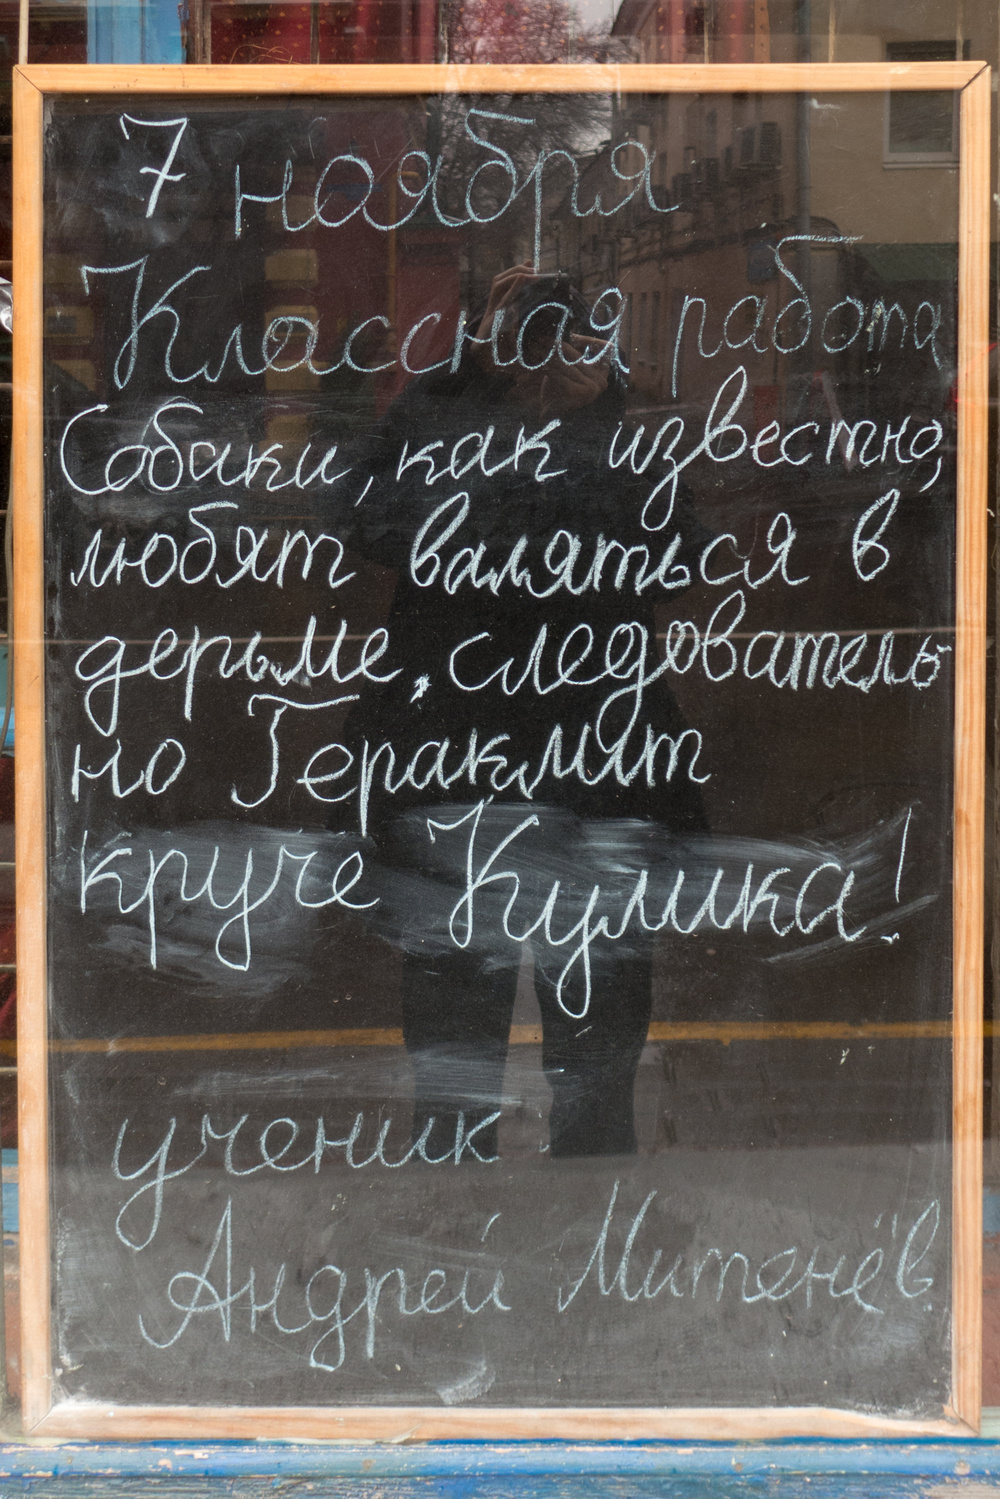 7 ноября
Классная работа
Собаки, как известно,
любят валяться в
дерьме, следователь
но Гераклит
круче Кулика!
ученик
Андрей Митенёв